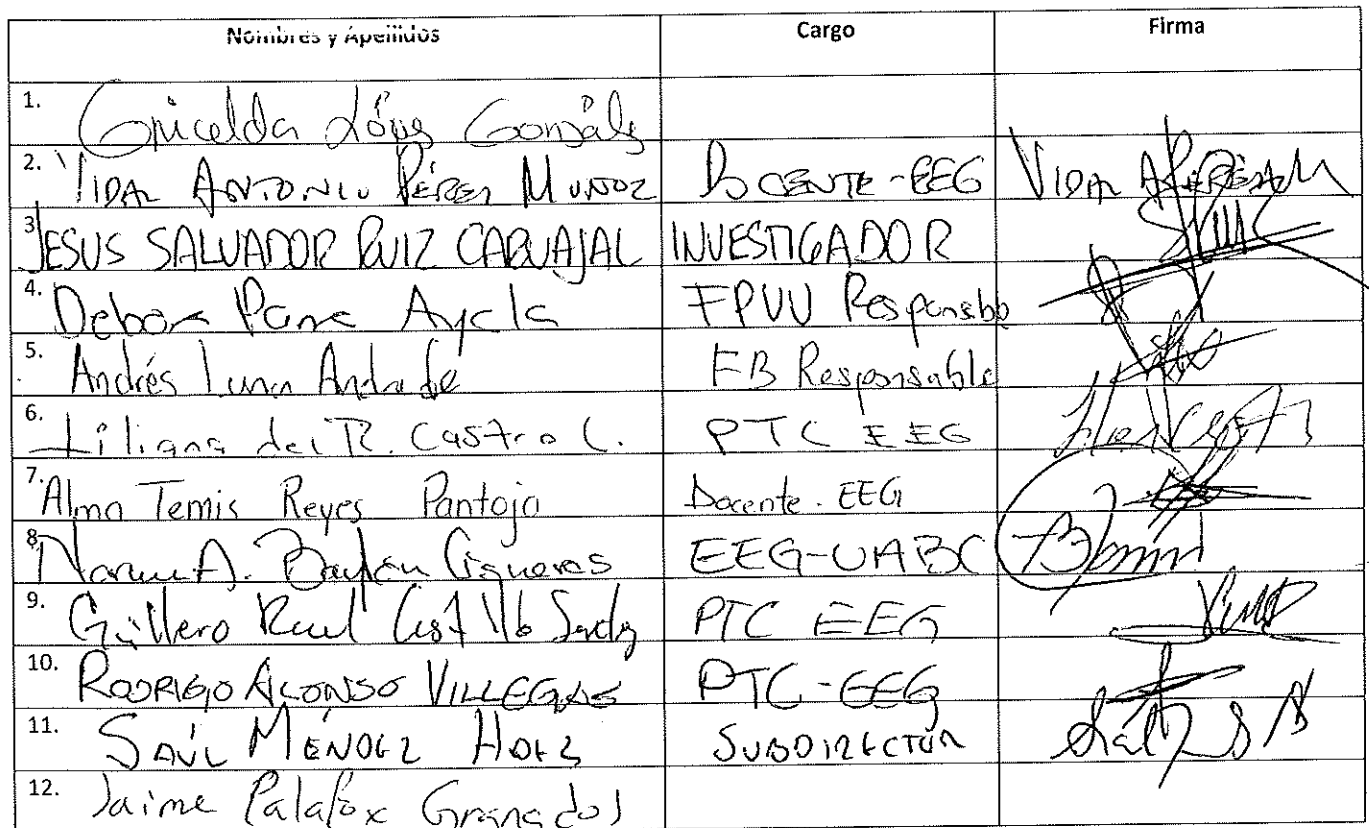 Nombres y Apellidos Cargo Firma
1. Gricelda López González
2. VIDAL ANTONIO PÉREZ MUÑOZ DOCENTE-EEG VIDAL A PÉREZ M
3. JESUS SALVADOR RUIZ CARVAJAL INVESTIGADOR
4. Debora Parra Ayala FPVU Responsable
5. Andrés Luna Andrade EB Responsable
6. Liliana del R. Castro L. PTC EEG
7. Alma Temis Reyes Pantoja Docente. EEG
8. A. Bautén Cisneros EEG-UABC
9. Guillero Raul Castillo PTC EEG
10. RODRIGO ALONSO VILLEGAS PTC-EEG
11. SAÚL MÉNDEZ HDEZ SUBDIRECTOR
12. Jaime Palafox Granados